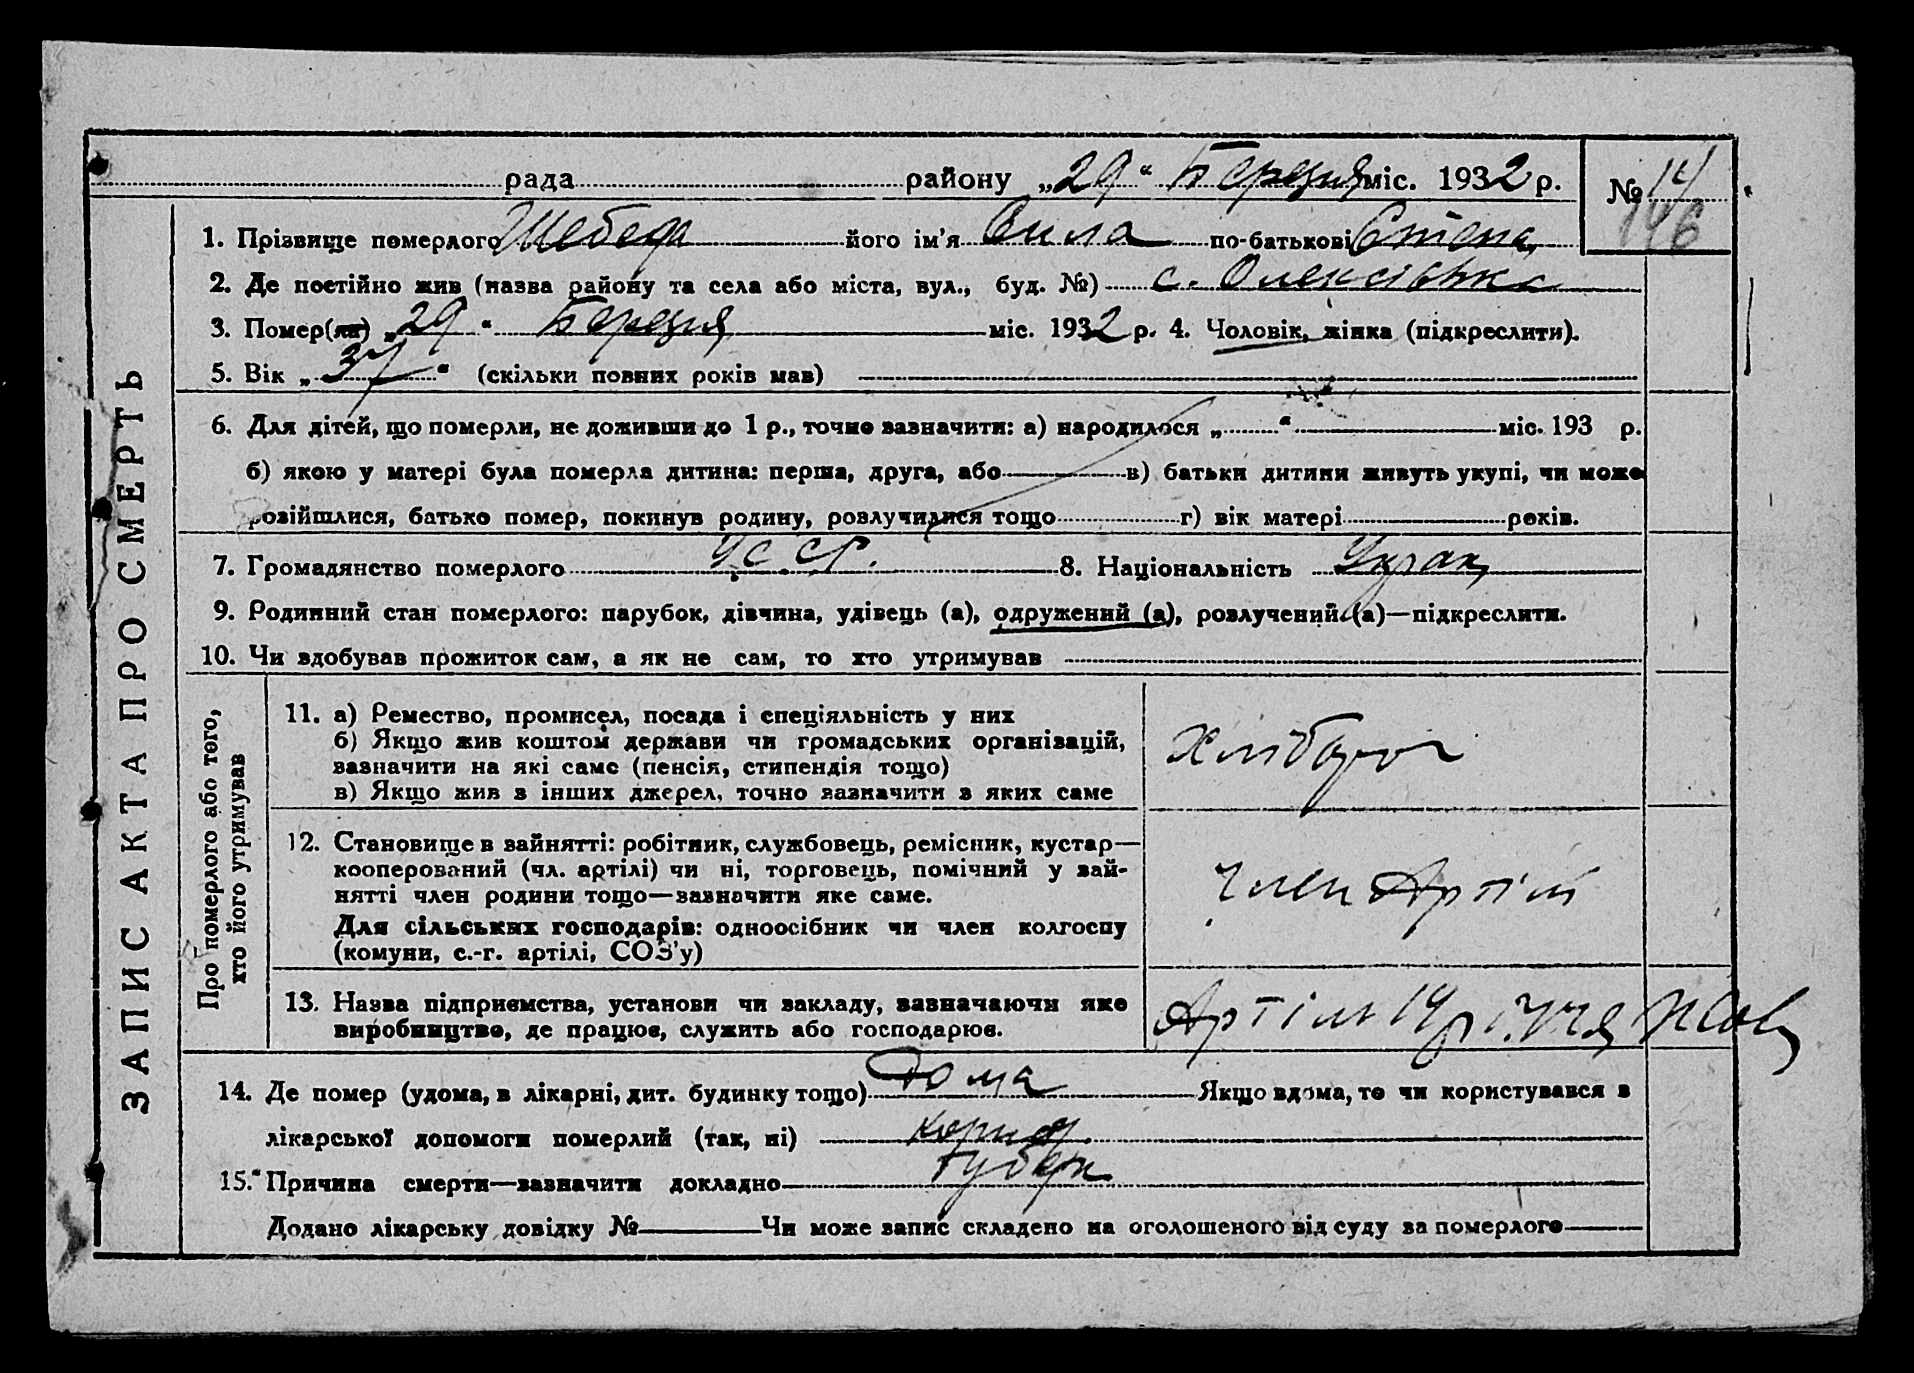 рада района „29“ Березня міс. 1932 р. № 14
146
1. Прізвище померлого його ім'я Сила по-батькові Степа
2. Де постійно жив (назва району та села або міста, вул., буд. №) с. Олексієвка
3. Помер(ла) „29“ Березня міс. 1932 р. 4. Чоловік, жінка (підкреслити).
5. Вік „37“ (скільки повних років мав)
6. Для дітей, що померли, не доживши до 1 р., точно зазначити: а) народилося „ “ міс. 193 р.
б) якою у матері була померла дитина: перша, друга, або в) батьки дитини живуть укупі, чи може
розійшлися, батько помер, покинув родину, розлучилися тощо г) вік матері років.
7. Громадянство померлого УССР. 8. Національність Украи
9. Родинний стан померлого: парубок, дівчина, удівець (а), одружений (а), розлучений (а)—підкреслити.
10. Чи здобував прожиток сам, а як не сам, то хто утримував
ЗАПИС АКТА ПРО СМЕРТЬ
Про померлого або того,
хто його утримував
11. а) Ремество, промисел, посада і спеціяльність у них
б) Якщо жив коштом держави чи громадських організацій,
зазначити на які саме (пенсія, стипендія тощо)
в) Якщо жив з інших джерел, точно зазначити з яких саме
Хлібороб
12. Становище в зайнятті: робітник, службовець, ремісник, кустар—
кооперований (чл. артілі) чи ні, торговець, помічний у зай-
нятті член родини тощо—зазначити яке саме.
Для сільських господарів: одноосібник чи член колгоспу
(комуни, с.-г. артілі, СОЗ'у)
Член Артілі
13. Назва підприємства, установи чи закладу, зазначаючи яке
виробництво, де працює, служить або господарює.
Артіль 14
14. Де помер (удома, в лікарні, дит. будинку тощо) Дома Якщо вдома, то чи користувався з
лікарської допомоги померлий (так, ні)
15. Причина смерти—зазначити докладно Туберк
Додано лікарську довідку № Чи може запис складено на оголошеного від суду за померлого